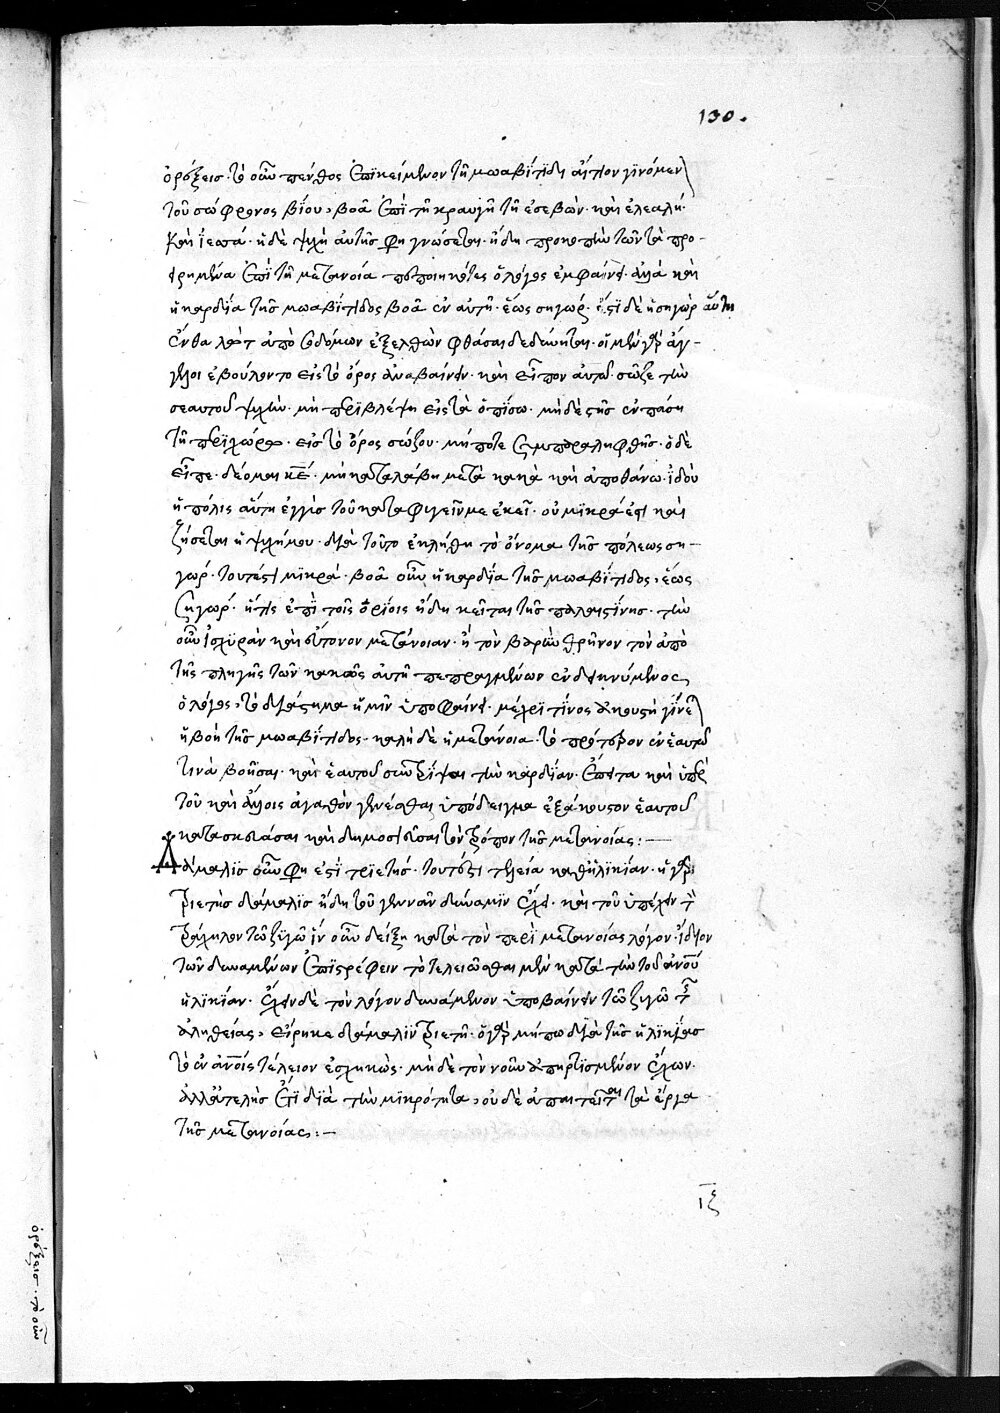 130.
ὀρέξεις. τὸ οὖν πένθος ἐπικείμενον τῇ μωαβίτιδι αἴτιον γινόμεν
τοῦ σώφρονος βίου, βοᾶ ἐπὶ τῇ κραυγῇ τῇ ἐσεβὼν. καὶ ἐλεαλή.
καὶ ἰεσσά. ἡ δὲ ψυχὴ αὐτῆς φη γνώσεται. ἤδη προκοπὴν τῶν τὰ προ-
ἐπὶ τῇ μετανοία ὁ λόγος ἐμφαίνει. ἀλλὰ καὶ
ἡ καρδία τῆς μωαβίτιδος βοᾶ ἐν αὐτῇ. ἕως σηγώρ. ἐστὶ δὲ ἡ σηγὼρ αὕτη
ἔνθα λὼτ ἀπὸ σοδόμων ἐξελθὼν φθάσαι δεδύνηται. οἱ μὲν γὰρ ἄγ-
γελοι ἐβούλοντο εἰς τὸ ὄρος ἀναβαίνειν. καὶ εἶπον αὐτῶ. σῶζε τὴν
σεαυτοῦ ψυχήν. μὴ περιβλέψη εἰς τὰ ὀπίσω. μηδὲ στῆς ἐν πάση
τῇ περιχώρω. εἰς τὸ ὄρος σώζου. μήποτε συμπαραληφθῆς. ὁ δὲ
εἶπε. δέομαι κε. μὴ καταλάβη με τὰ κακὰ καὶ ἀποθάνω. ἰδοὺ
ἡ πόλις αὕτη ἐγγὺς τοῦ καταφυγεῖν με ἐκεῖ. οὐ μικρά ἐστι καὶ
ζήσεται ἡ ψυχή μου. διὰ τοῦτο ἐκλήθη τὸ ὄνομα τῆς πόλεως ση-
γώρ. τουτέστι μικρά. βοᾶ οὖν ἡ καρδία τῆς μωαβίτιδος, ἕως
σηγώρ. ἥτις ἐπὶ τοῖς ὁρίοις ἤδη κεῖται τῆς παλαιστίνης. τὴν
οὖν ἰσχυρὰν καὶ σύντονον μετάνοιαν. ἢ τὸν βαρὺν θρῆνον τὸν ἀπὸ
τῆς πληγῆς τῶν κακῶς αὐτῇ πεπραγμένων ἐνδεικνύμενος
ὁ λόγος, τὸ διάστημα ἡμῖν ὑποφαίνει. μέχρι τίνος ἀκουστὴ γίνε
ἡ βοὴ τῆς μωαβίτιδος. καλὴ δὲ ἡ μετάνοια. τὸ πρότερον ἐν ἑαυτῶ
τινὰ βοῆσαι. καὶ ἑαυτοῦ συντρίψαι τὴν καρδίαν. ἔπειτα καὶ ὑπὲρ
τοῦ καὶ ἄλλοις ἀγαθὸν γενέσθαι ὑπόδειγμα ἐξάκουστον ἑαυτοῦ
κατασκευάσαι καὶ δημοσιεῦσαι τὸν τρόπον τῆς μετανοίας:—
Δάμαλις οὖν φη ἐστὶ τριετής. τουτέστι τελεία καθ' ἡλικίαν. ἡ γὰρ
τριετὴς δάμαλις ἤδη τοῦ γεννᾶν δύναμιν ἔχει. καὶ τοῦ ὑπέχειν τ
τράχηλον τῶ ζυγῶ ἵν οὖν δείξη κατὰ τὸν περὶ μετανοίας λόγον. ἴδιον
τῶν δυναμένων ἐπιστρέφειν τὸ τελειῶσθαι μὲν κατὰ τὴν τοῦ ἀνου
ἡλικίαν. ἔχειν δὲ τὸν λόγον δυνάμενον ὑποβαίνειν τῶ ζυγῶ τ
ἀληθείας, εἴρηκε δάμαλιν τριετῆ. ὁ γὰρ μήπω διὰ τῆς ἡλικίας
τὸ ἐν ἀνοις τέλειον ἐσχηκὼς. μηδὲ τὸν νοῦν ἀπηρτισμένον ἔχων.
ἀλλ' ἀτελὴς ἔτι διὰ τὴν μικρότητα, οὐδὲ ἀπαιτεῖται τὰ ἔργα
τῆς μετανοίας:—
ιξ
ὀρέξεις. τὸ οὖν